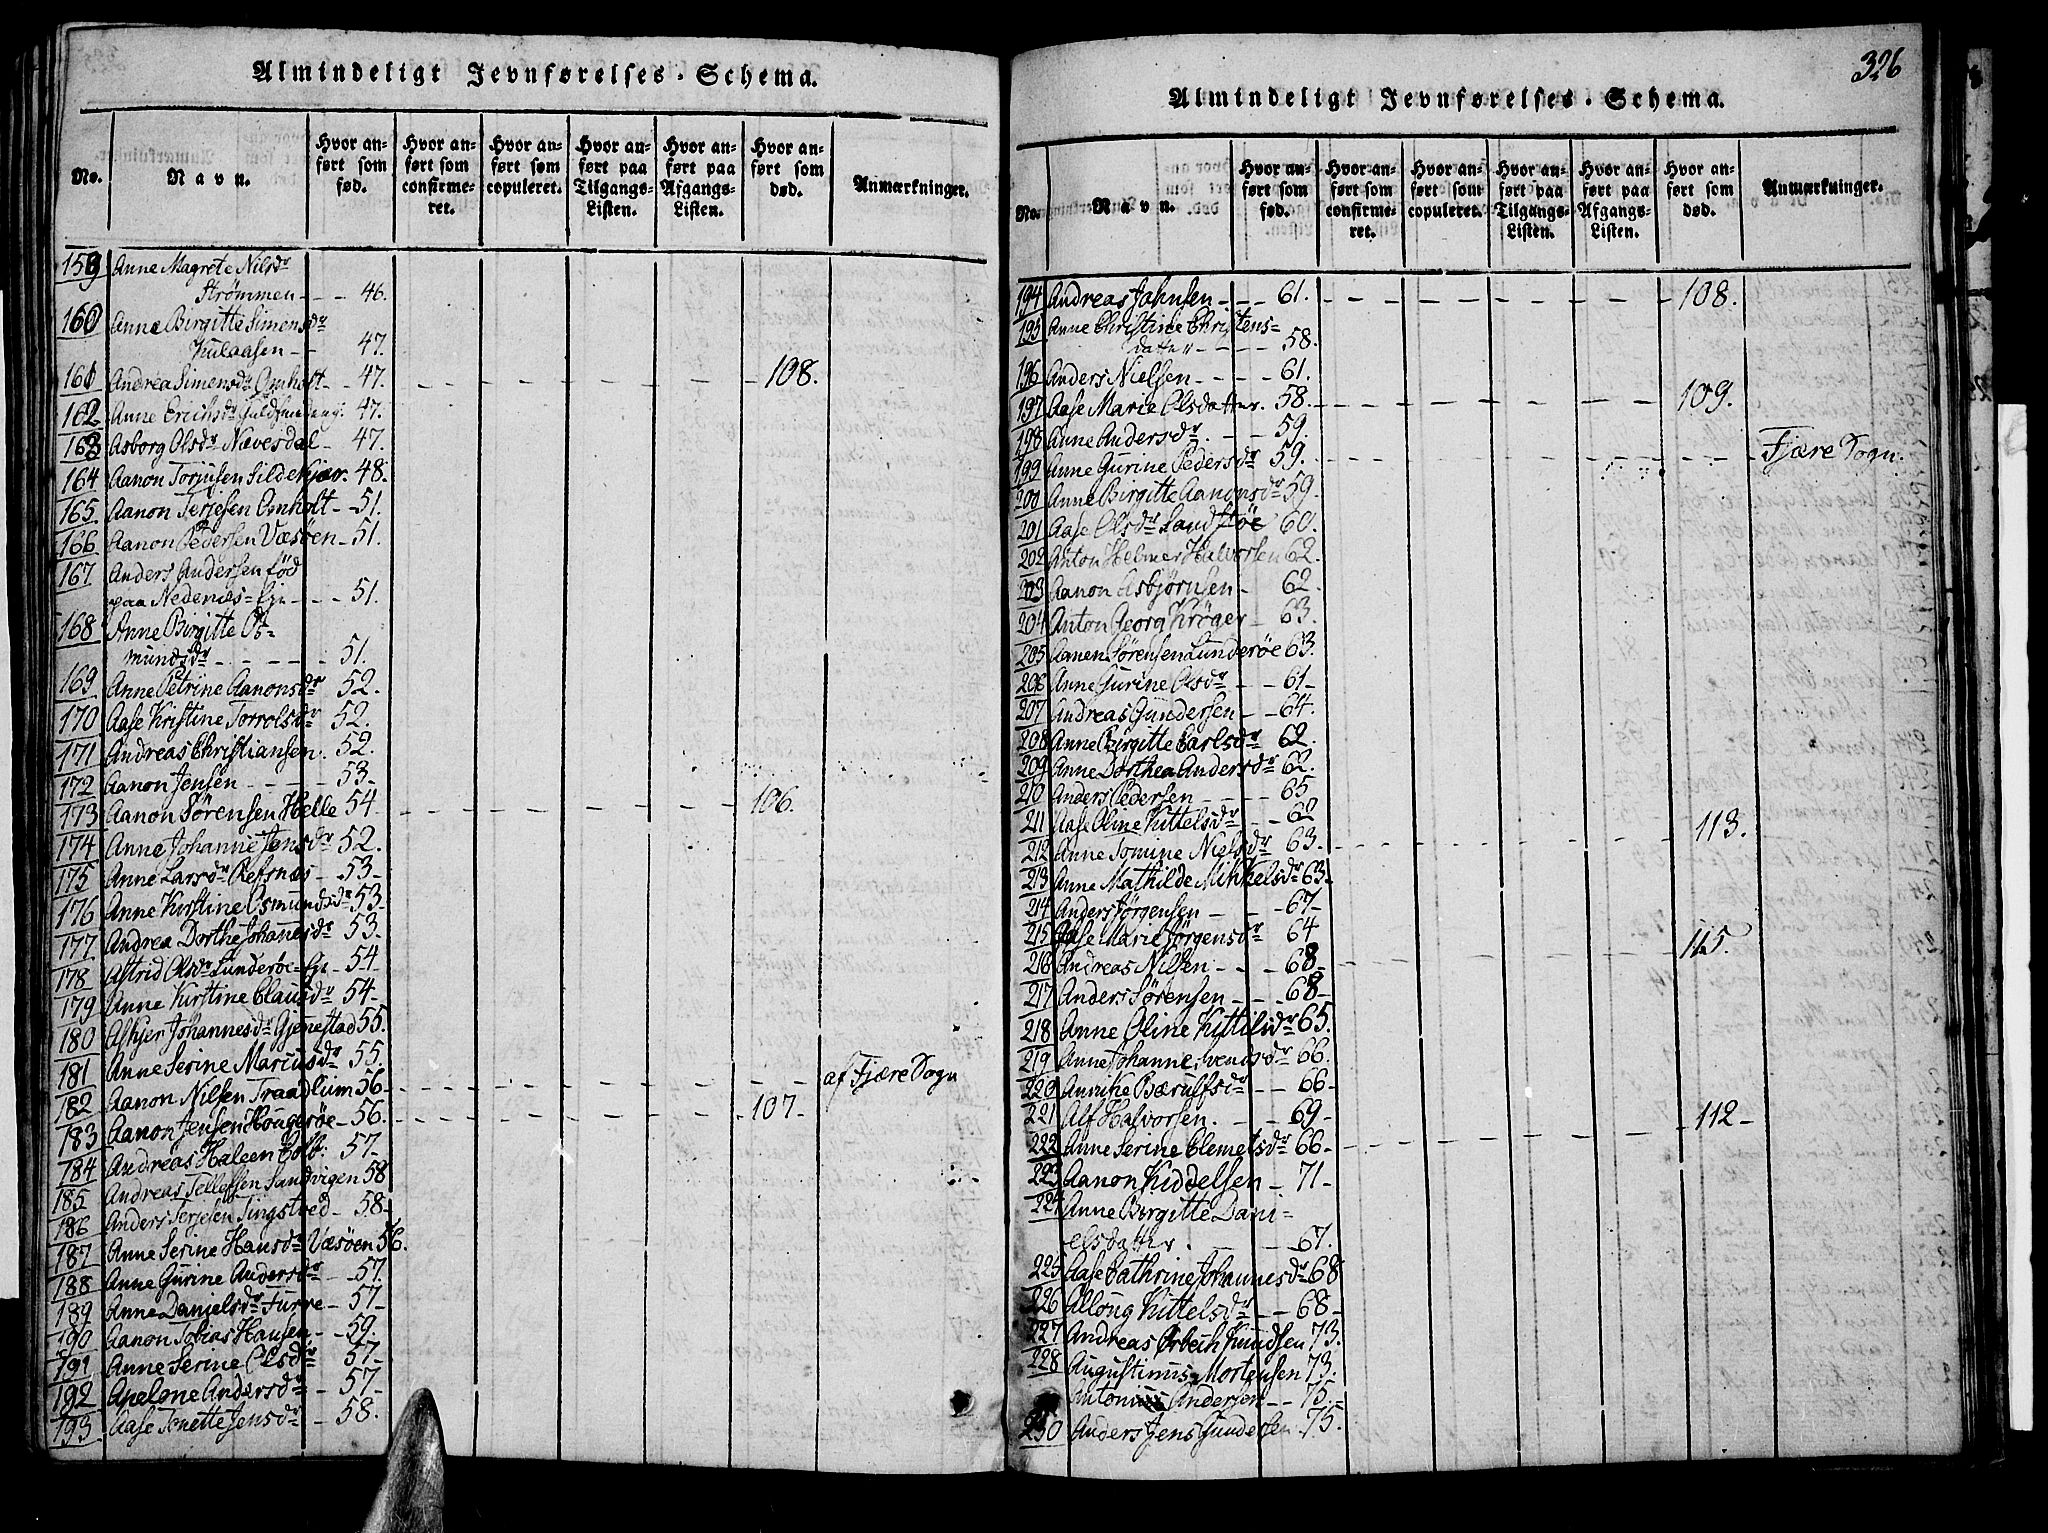 Almindeligt Jevnførelses-Schema.
No.
Navn.
Hvor anført som fød.
Hvor anført som confirmeret.
Hvor anført som copuleret.
Hvor anført paa Tilgangs-Listen.
Hvor anført paa Afgangs-Listen.
Hvor anført som død.
Anmærkninger.
159 Anne Magrete Nilsdr
Strømmen - - - 46.
160 Anne Birgitte Simensdr
Kulaasen - - 47.
161 Andrea Simensdr Omholt - 47. - - - 108.
162 Anne Erichsdr 47.
163 Asborg Olsdr Nævesdal - 47.
164 Aanon Torjusen Sildekjær. 48.
165. Aanon Terjesen Omholt - 51.
166 Aanon Pedersen Væsøen - 51.
167 Anders Andersen fød
paa Nedenæs - - - 51.
168 Anne Birgitte Os=
mundsdr - - - - 51.
169 Anne Petrine Aanonsdr 52.
170 Aase Kristine Torrolsdr 52.
171 Andreas Christiansen. 52.
172 Aanon Jensen - - - - 53-
173 Aanon Sørensen Helle 54 - - - 106.
174 Anne Johanne Jensdr 52.
175 Anne Larsdr Refsnæs - 53-
176 Anne Kirstine Osmundsdr 53-
177. Andrea Dorthe Johannesdr 53.
178 Astrid Olsdr Lunderøe - 54-
179 Anne Kirstine Clausdr 54-
180 Askjer Johannesdr Gjennestad 55.
181 Anne Serine Mariusdr 55.
182 Aanon Nilsen Traadlum 56 - - - af Fjære Sogn
183 Aanon Jensen Hougerøe - 56. - - - 107-
184 Andreas Haleen Colb: 57-
185 Andreas Tellefsen Sandvigen 58
186 Anders Terjesen Tingstved - 58-
187 Anne Serine Hansdr Væsøen 56.
188 Anne Gurine Andersdr - 57.
189 Anne Danielsdr Furre - 57-
190 Aanon Tobias Hansen - 59.
191 Anne Serine Olsdr 57-
192 Apelone Andersdr - 57-
193 Aase Tonette Jensdr - 58.
326
Almindeligt Jevnførelses-Schema.
No.
Navn.
Hvor anført som fød.
Hvor anført som confirmeret.
Hvor anført som copuleret.
Hvor anført paa Tilgangs-Listen.
Hvor anført paa Afgangs-Listen.
Hvor anført som død.
Anmærkninger.
194 Andreas Jahnsen - - - 61. - - - 108.
195 Anne Christine Christens=
datter - - - - 58.
196 Anders Nielsen - - - - 61.
197 Aase Marie Olsdatter. 58. - - - 109.
198 Anne Andersdr. - - 59.
199 Anne Gurine Pedersdr 59. - - - Fjære Sogn.
200 Anne Birgitte Aanonsdr 59-
201 Aase Olsdr Sandstöe 60.
202 Anton Helmer Halvorsen 62.
203 Aanon Asbjörnsen - 62.
204 Anton Georg Kröger - 63.
205 Aanen Sörensen Lunderöe 63.
206 Anne Gurine Olsdr - - 61-
207 Andreas Gundersen - - 64.
208 Anne Birgitte Carlsdr 62.
209 Anne Dorthea Andersdr 62.
210 Anders Pedersen - - - - 65
211 Aase Oline Kittelsdr - - 62
212 Anne Tomine Nielsdr 63. - - - 113.
213 Anne Mathilde Mikkelsdr 63-
214 Anders Jørgensen - - - 67-
215 Aase Marie Jørgensdr 64
216 Andreas Nilsen - - - 68- - - - 115.
217 Anders Sørensen - - - 68-
218 Anne Oline Kittilsdr 65.
219 Anne Johanne Svendsdr 66.
220 Annike Bærulfsdr - - 66-
221 Alf Halvorsen. - - - 69-
222 Anne Serine Clemetsdr 66- - - - 112-
223 Aanon Kiddelsen - 71-
224 Anne Birgitte Dani=
elsdatter. - - - 67.
225 Aase Cathrine Johannesdr 68
226 Alloug Kittelsdr - - 68-
227 Andreas Orbech Knudsen 73.
228 Augustinus Mortensen 73.
Antonius Andersen - - 75.
230 Anders Jens Gundersen 75.